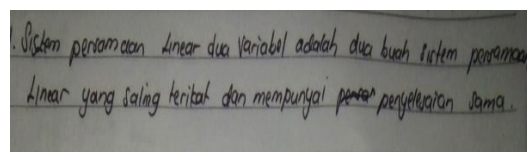 1. Sistem persamaan Linear dua Variabel adalah dua buah sistem persamaan
Linear yang saling terikat dan mempunyai penyelesaian sama.